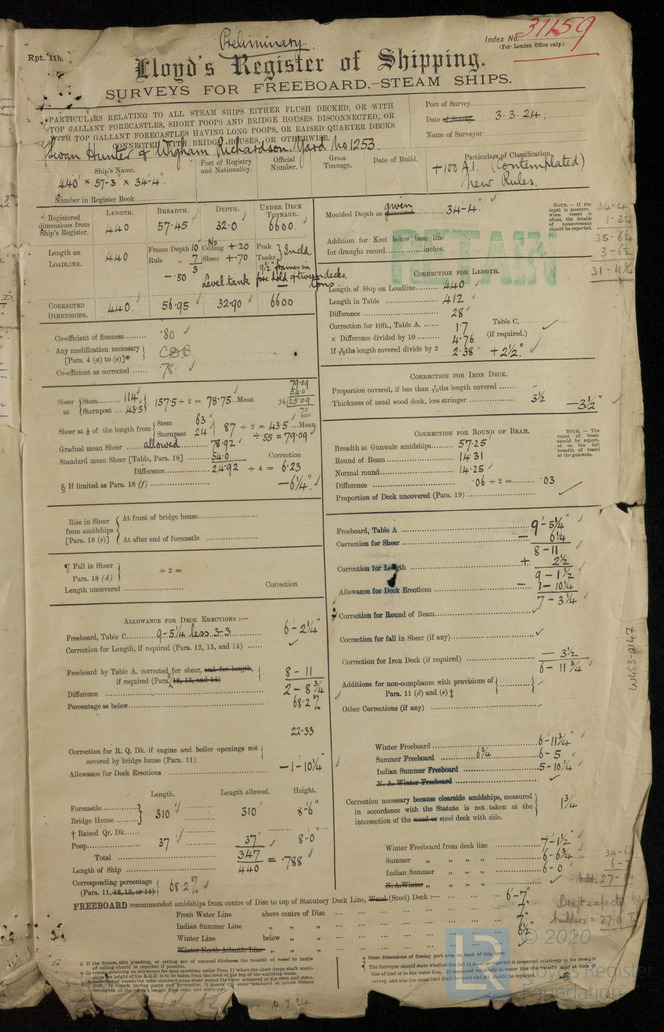 Preliminary
Rpt. 11b.
Index No. 31159
(For London Office only.)
Lloyd's Register of Shipping.
SURVEYS FOR FREEBOARD.—STEAM SHIPS.
PARTICULARS RELATING TO ALL STEAM SHIPS EITHER FLUSH DECKED, OR WITH
TOP GALLANT FORECASTLES, SHORT POOPS AND BRIDGE HOUSES DISCONNECTED, OR
WITH TOP GALLANT FORECASTLES HAVING LONG POOPS, OR RAISED QUARTER DECKS
CONNECTED WITH BRIDGE HOUSES, OR OTHERWISE.
Port of Survey
Date of Survey 3.3.24.
Name of Surveyor
Swan Hunter & Wigham Richardson. Yard No 1253.
Ship's Name.
Port of Registry and Nationality.
Official Number.
Gross Tonnage.
Date of Build.
Particulars of Classification.
+100A.1. (Contemplated)
New Rules.
440' × 57-3 × 34-4"
Number in Register Book
Registered dimensions from Ship's Register.
LENGTH. BREADTH. DEPTH. UNDER DECK TONNAGE.
440 57.45 32.0 6600
Length on LOADLINE. 440
Frame Depth 10 No Ceiling +.20 Peak Tanks
Rule 7 Sheer +.70
3
-.50
Level tank
CORRECTED DIMENSIONS. 440. 56.95 32.90 6600
Moulded Depth as given 34-4."
Addition for Keel below base line
for draught record inches.
RETAIN
NOTE.—If the depth is measured when vessel is afloat, the details of measurement should be reported.
34-4
31-11¼
CORRECTION FOR LENGTH.
Length of Ship on Loadline 440
Length in Table 412
Difference 28
Correction for 10ft., Table A. 1.7 Table C.
× Difference divided by 10 4.76 (if required.)
If 6/10ths length covered divide by 2 2.38 +2½"
Co-efficient of fineness .80
Any modification necessary
[Para. 4 (d) to (e)]* C.D.B.
Co-efficient as corrected .78
CORRECTION FOR IRON DECK.
Proportion covered, if less than 7/10ths length covered —
Thickness of usual wood deck, less stringer 3½ —3½"
Sheer at { Stem 114 Sternpost 43.5 } 157.5 ÷ 2 = 78.75 Mean
79.09
54.0
25.09
Sheer at ⅛ of the length from { Stem 63 Sternpost 24 } 87 ÷ 2 = 43.5 Mean
÷ .55 = 79.09
Gradual mean Sheer allowed 78.92
Standard mean Sheer [Table, Para. 18] 54.0 Correction
Difference 24.92 ÷ 4 = 6.23
§ If limited as Para. 18 (f) —6¼"
CORRECTION FOR ROUND OF BEAM.
Breadth at Gunwale amidships 57.25
Round of Beam 14.31
Normal round 14.25
Difference .06 ÷ 2 = .03
Proportion of Deck uncovered (Para. 19)
NOTE.—The round of beam should be reported on the full breadth of vessel at the gunwale.
Rise in Sheer from amidships [Para. 18 (e)]
At front of bridge house
At after end of forecastle
¶ Fall in Sheer Para. 18 (d) ÷ 2 =
Length uncovered Correction
Freeboard, Table A 9-5¼
Correction for Sheer — 6¼
8-11
Correction for Length + 2½
9-1½
Allowance for Deck Erections — 1-10¼
7-3¼
Correction for Round of Beam
Correction for fall in Sheer (if any)
Correction for Iron Deck (if required) — 3½
6-11¾
Additions for non-compliance with provisions of
Para. 11 (d) and (e) ‡
Other Corrections (if any)
ALLOWANCE FOR DECK ERECTIONS:—
Freeboard, Table C 9-5¼ less 3-3 6-2¼"
Correction for Length, if required (Para. 12, 13, and 14)
Freeboard by Table A. corrected for sheer, and for length,
if required (Para. 12, 13, and 14) 8-11
Difference 2-8¾
Percentage as below 68.2%
22.33
Correction for R. Q. Dk. if engine and boiler openings not
covered by bridge house (Para. 11)
Allowance for Deck Erections —1-10¼"
Winter Freeboard 6-11¾
Summer Freeboard 6¾ 6-5
Indian Summer Freeboard 5-10¼
N. A. Winter Freeboard
Correction necessary because clearside amidships, measured
in accordance with the Statute is not taken at the
intersection of the wood or steel deck with side. 1¾
Length. Length allowed. Height.
Forecastle
Bridge House 310 310 8-6"
† Raised Qr. Dk.
Poop 37 37 8-0"
Total 347
Length of Ship 440 = .788
Corresponding percentage
(Para. 11, 12, 13, or 14) 68.2%
Winter Freeboard from deck line 7-1½"
Summer „ „ „ 6-6¾
Indian Summer „ „ „ 6-0
N.A. Winter „ „ „
FREEBOARD recommended amidships from centre of Disc to top of Statutory Deck Line, Wood (Steel) Deck:— 6-7"
Fresh Water Line above centre of Disc
Indian Summer Line „
Winter Line below „
Winter North Atlantic Line „
4.3.24
W453-0147
LR
© 2020
Lloyd's Register
Foundation